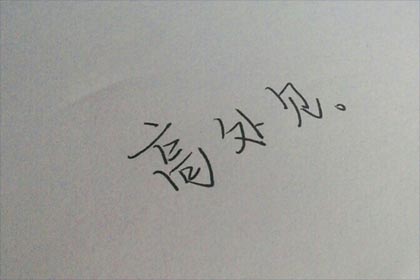 高处见。